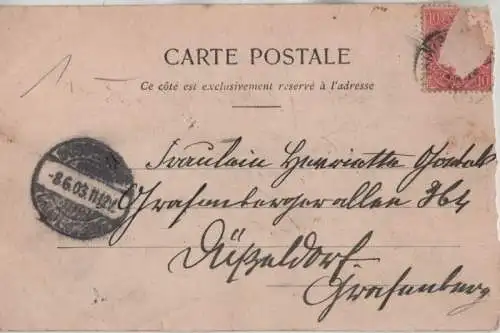 10 10
CARTE POSTALE
Ce côté est exclusivement reservé à l'adresse
-8.6.03.11-12V
Fräulein Henriette
Grafenbergerallee
Düßeldorf
Grafenberg